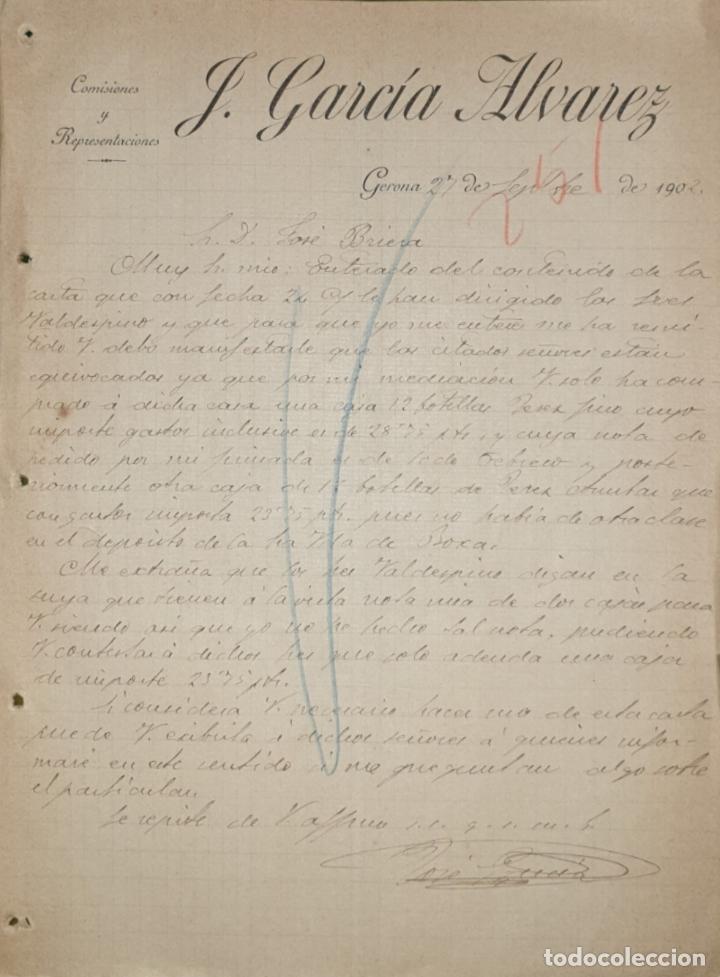 J. García Alvarez
Comisiones
y
Representaciones
Gerona 27 de Septbre de 1902.
251
Sr. D. José Briera
Muy Sr. mio: Enterado del contenido de la
carta que con fecha 24 le han dirigido los Sres
Valdespino y que para que yo me entere me ha remi-
tido V. debo manifestarle que los citados señores están
equivocados ya que por mi mediación V. solo ha com-
prado á dicha casa una caja 12 botellas Jerez fino cuyo
importe gastos inclusive es de 28'75 pts. y cuya nota de
pedido por mi firmada es de 1º de Febrero y poste-
riormente otra caja de 12 botellas de Jerez que
con gastos importa 23'75 pts. pues no habia de otra clase
en el depósito de la Sra Vda de Roxas.
Me extraña que los Sres Valdespino digan en la
suya que tienen á la vista nota mia de dos cajas para
V. siendo asi que yo no he hecho tal nota, pudiendo
V. contestar á dichos Sres que solo adeuda una caja
de importe 23'75 pts.
Si considera V. necesario hacer uso de esta carta
puede V. exibirla á dichos señores á quienes infor-
maré en este sentido si me preguntan algo sobre
el particular.
Se repite de V. affmo s.s. q. s. m. b.
José García
todocoleccion.net